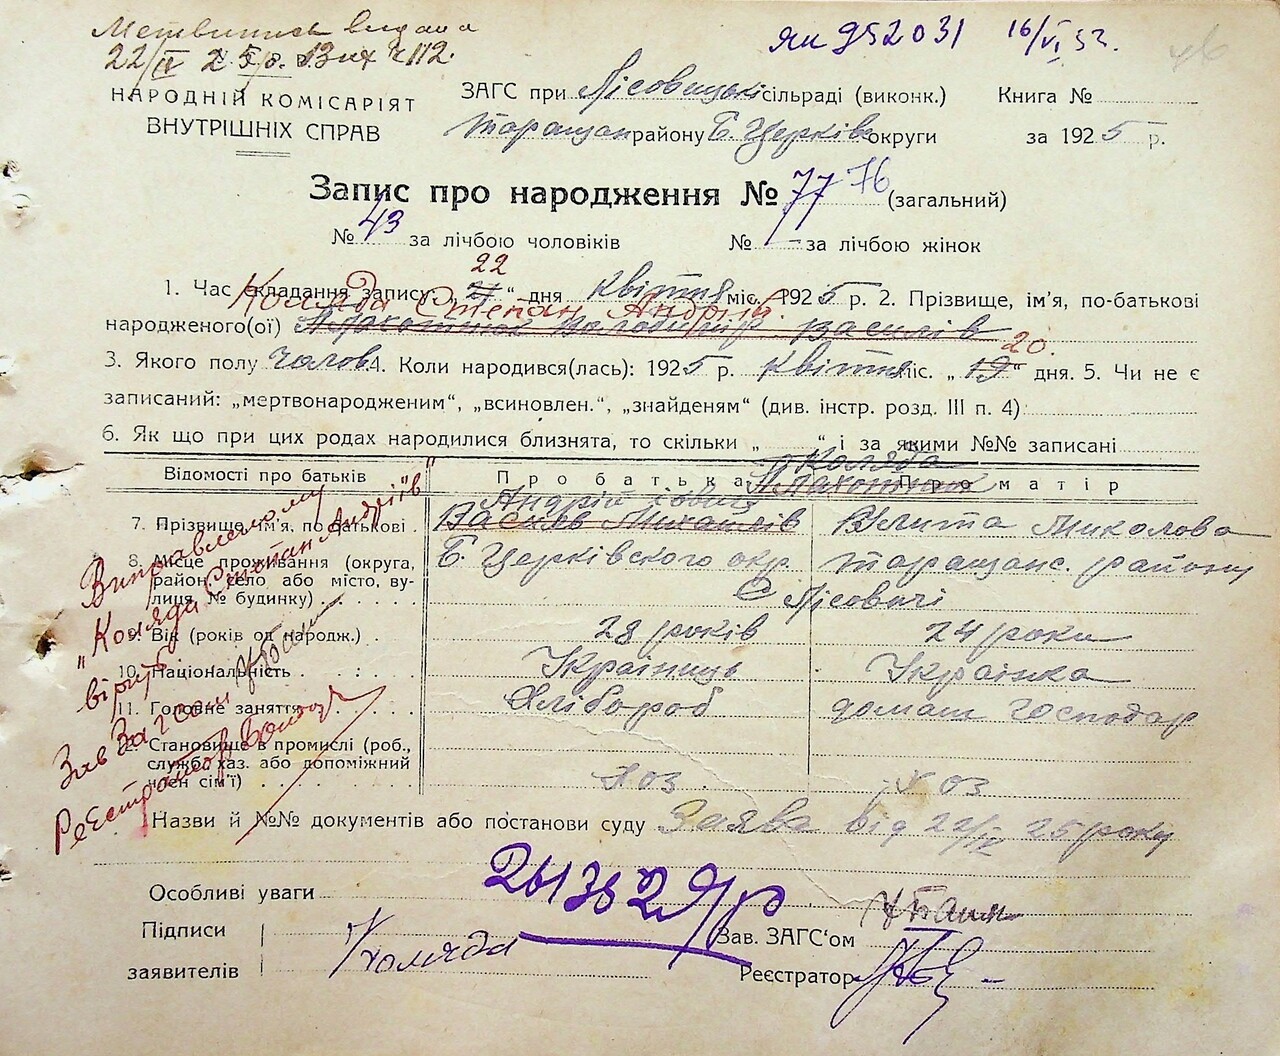 Метвипись видана
22/IV 25р. Вих ч 112.
ЯЦ 952031 16/VI 53.
46
НАРОДНІЙ КОМІСАРІЯТ
ВНУТРІШНІХ СПРАВ
ЗАГС при Лісовицькі сільраді (виконк.) Книга №
Таращан району Б. Церків округи за 1925 р.
Запис про народження № 77 76 (загальний)
№ 43 за лічбою чоловіків № — за лічбою жінок
22
1. Час складання запису: „21“ дня квітня міс. 1925 р. 2. Прізвище, ім'я, по-батькові
Коляда Степан Андрій.
народженого(ої) Василів
20.
3. Якого полу Чолов. 4. Коли народився(лась): 1925 р. квітня міс. „19“ дня. 5. Чи не є
записаний: „мертвонародженим“, „всиновлен.“, „знайденям“ (див. інстр. розд. III п. 4)
6. Як що при цих родах народилися близнята, то скільки „ “ і за якими №№ записані
Коляда
Відомості про батьків Про батька Про матір
Андрій
7. Прізвище, ім'я, по батькові Василь Михайлів Улита Миколова
8. Місце проживання (округа, район, село або місто, вулиця, № будинку) Б. Церківского окр. Таращанс. району
С Лісовичі
9. Вік (років од народж.) 28 років 24 роки
10. Національність Українець Українка
11. Головне заняття Хлібороб домаш господар
12. Становище в промислі (роб., службо, хаз. або допоміжний член сім'ї) хоз хоз
Виправленому
„Коляда Степан Андріїв“
вірить
Зав Загсом
Реєстратор
Назви й №№ документів або постанови суду Заява від 22/IV 25 року
Особливі уваги
Підписи
заявителів Коляда
Зав. ЗАГС'ом
Реєстратор